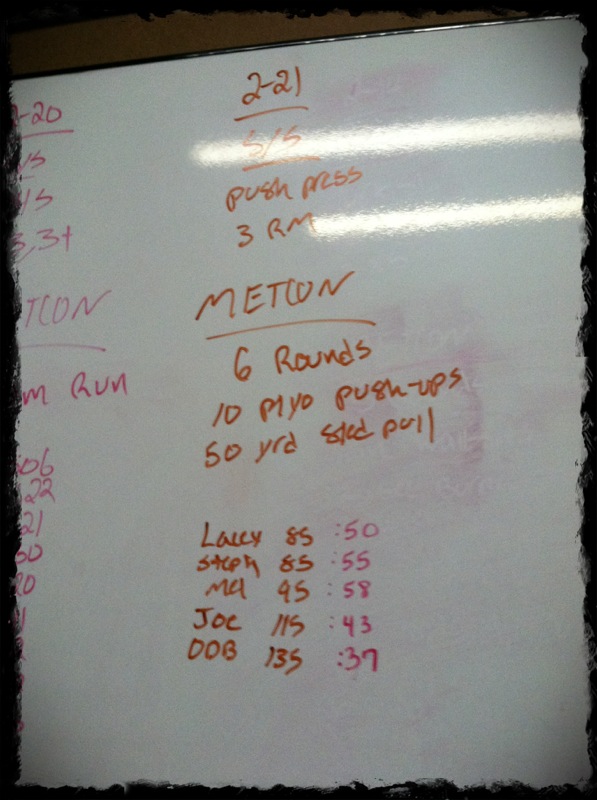 -20
3,3+
TCON
m RUN
06
22
21
50
20
2-21
S/S
push press
3 RM
METCON
6 Rounds
10 plyo push-ups
50 yrd sled pull
Lacey 85 :50
Steph 85 :55
Mel 95 :58
Joe 115 :43
DOB 135 :37